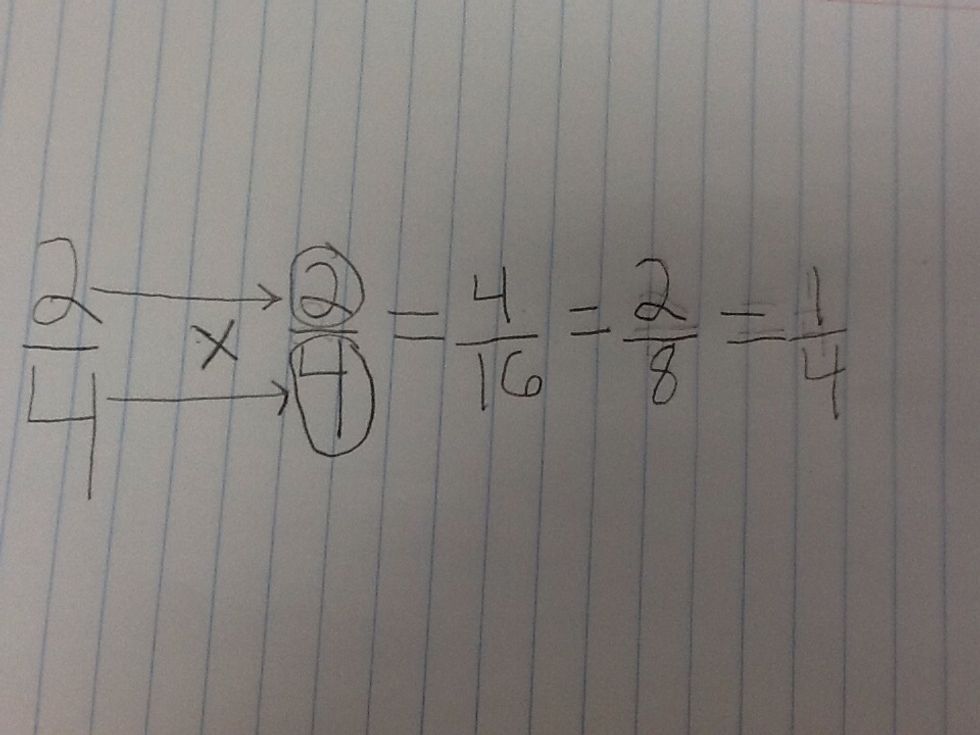 2/4 × 2/4 = 4/16 = 2/8 = 1/4